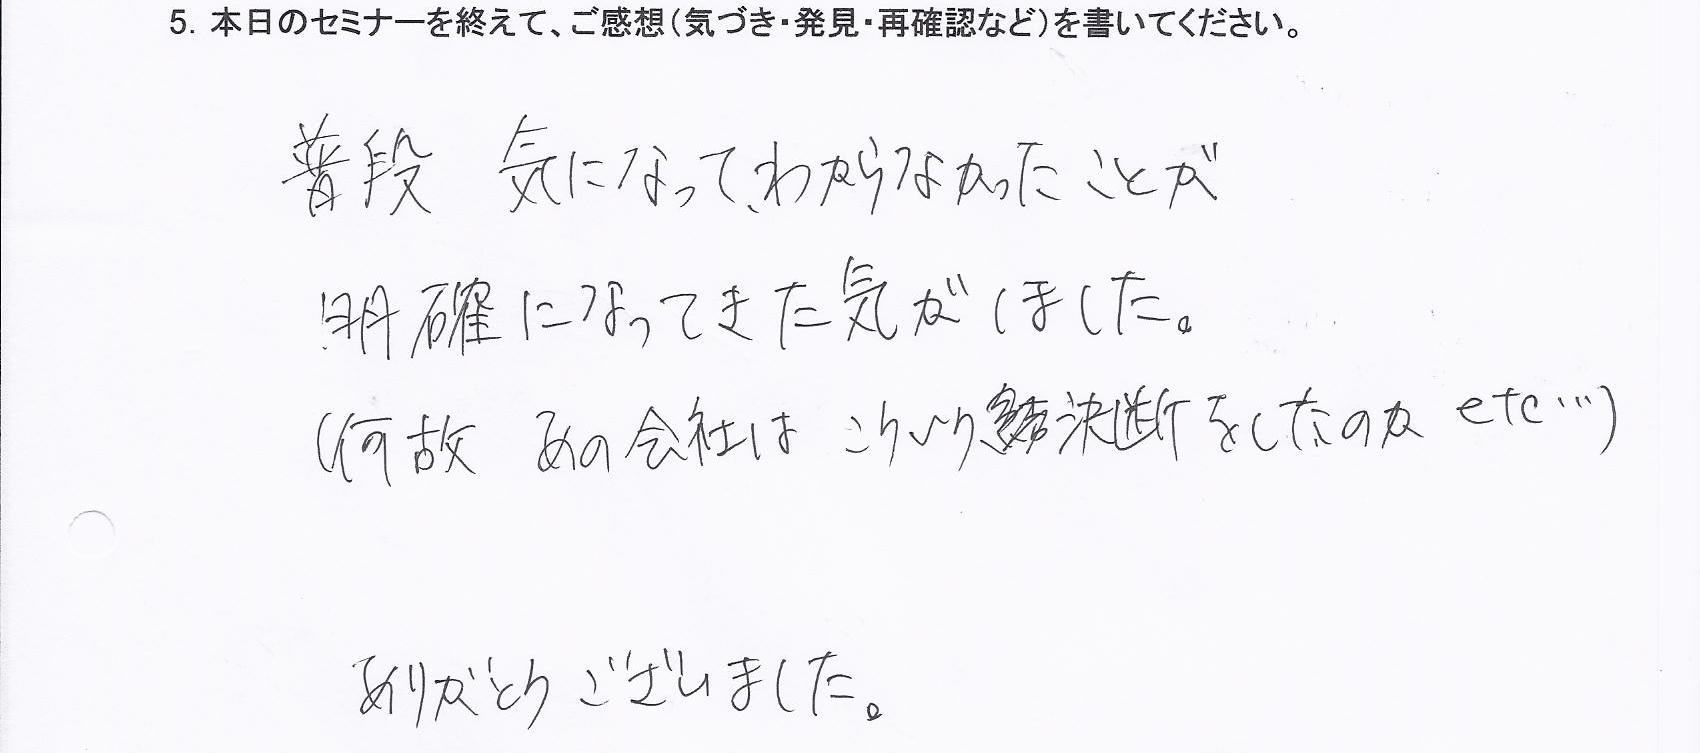 5. 本日のセミナーを終えて、ご感想(気づき・発見・再確認など)を書いてください。
普段 気になって、わからなかったことが
明確になってきた気がしました。
(何故 あの会社は こういう決断をしたのか etc…)
ありがとうございました。